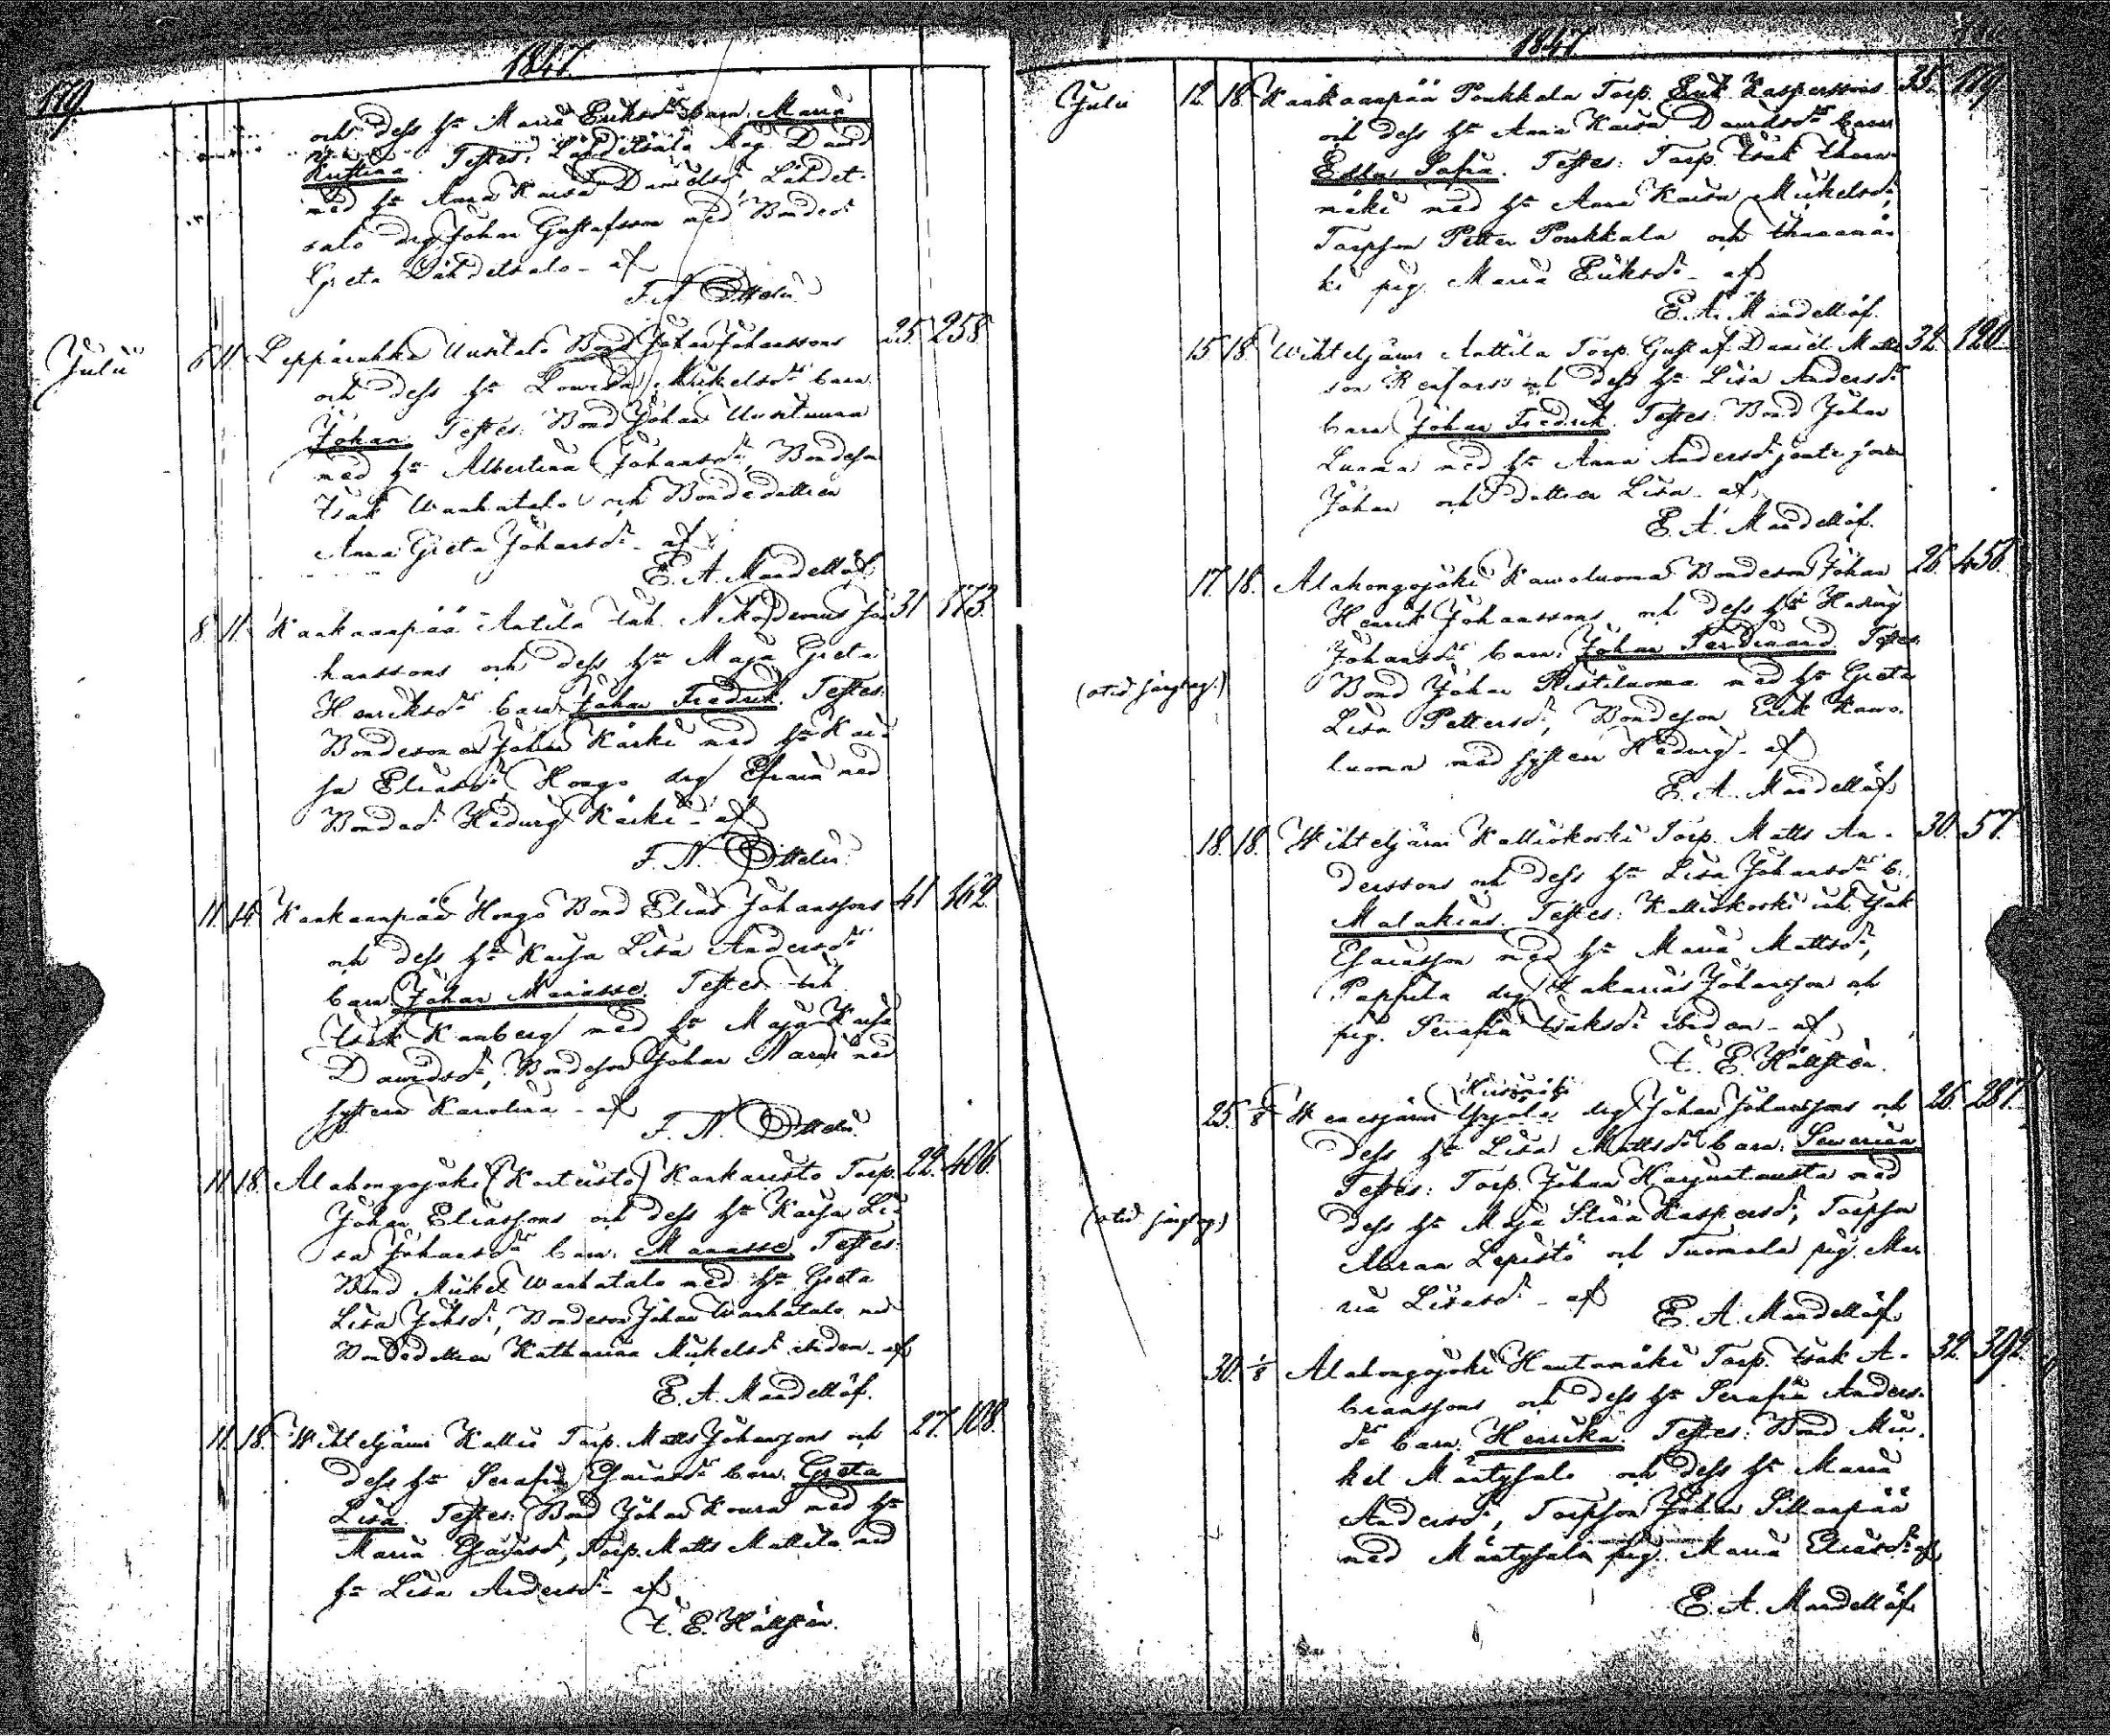 179
1847.
och dess hu Maria Eriksdrs barn: Maria
Kristina. Testes: Lähdetsalo drg David
med hu Anna Kaisa Danielsdr, Lähdet-
salo drg Johan Gustafsson med Bondedr
Greta Lähdetsalo - af
F. N. Ottelin.
Julii
6 11. Leppärahka Uusitalo Bond. Johan Johanssons 25. 258.
och dess hu Lowisa Mickelsdrs barn
Johan. Testes: Bond Johan Uusituuna
med hu Albertina Johansdr, Bondeson
Isak Wanhatalo och Bondedottren
Anna Greta Johansdr - af
E. A. Mandellöf.
8 11. Kankaanpää Antila Inh. Nikodemus Jo- 31 173.
hanssons och dess hu Maja Greta
Henriksdrs barn Johan Fredrik. Testes:
Bondesonen Johan Kärki med hu Kai-
sa Eliasdr, Hongo drg Efraim med
Bondedr Hedvig Kärki - af
F. N. Ottelin.
11. 14. Kankaanpää Hongo Bond Elias Johanssons 41 162.
och dess hu Kaisa Lisa Andersdrs
barn Johan Manasse. Testes: Inh.
Isak Kanberg med hu Maja Kaisa
Davidsdr, Bondeson Johan Narvi med
systern Karolina - af
F. N. Ottelin.
11 18. Alahongojoki (Korteisto) Kankaristo Torp. 22. 406.
Johan Eliassons och dess hu Kaisa Li-
sa Johansdrs barn: Manasse. Testes:
Bond Mickel Wanhatalo med hu Greta
Lisa Johsdr, Bondeson Johan Wanhatalo med
Bondedottren Katharina Mickelsdr ibidem - af
E. A. Mandellöf.
11. 18. Wihteljärvi Kallio Torp. Matts Johanssons och 27. 108.
dess hu Serafia Esaiasdrs barn: Greta
Lisa. Testes: Bond Johan Koura med hu
Maria Esaiasdr, Torp. Matts Mattila med
hu Lisa Andersdr - af
I. E. Hällsten.
1847.
Julii 12. 18. Kankaanpää Poukkala Torp. Erik Kasperssons 38. 119.
och dess hu Anna Kaisa Davidsdrs barn
Edla Sofia. Testes: Torp. Isak Uhara-
mäki med hu Anna Kaisa Mickelsdr,
Torpson Petter Poukkala och
ki pig. Maria Eriksdr - af
E. A. Mandellöf.
15 18. Wihteljärvi Anttila Torp. Gustaf Daniel Matts- 32. 120.
son Renfors och dess hu Lisa Andersdrs
barn Johan Fredrik. Testes: Bond Johan
Luoma med hu Anna Andersdr jemte sonen
Johan och dottren Lisa - af
E. A. Mandellöf.
17 18. Alahongojoki Kawoluoma Bondeson Johan 26. 456.
Henrik Johanssons och dess hu Hedvig
Johansdrs barn: Johan Ferdinand. Testes:
(otid. sängeg.) Bond Johan Ristiluoma med hu Greta
Lisa Pettersdr, Bondeson Erik Kawo-
luoma med systern Hedvig - af
E. A. Mandellöf.
18. 18. Wihteljärvi Kalliokoski Torp. Matts An- 30. 57.
derssons och dess hu Lisa Johansdrs b.
Malakias. Testes: Kalliokoski inh. Isak
Esaiasson med hu Maria Mattsdr,
drg Zakarias Johansson och
pig. Serafia Isaksdr ibidem - af
I. E. Hällsten.
25. 1/8 Wenesjärvi Yrjälä drg Johan Johanssons och 26. 287.
dess hu Lisa Mattsdrs barn: Sewerina
Testes: Torp. Johan Harjuntausta med
(otid. sängeg.) dess hu Maja Stina Kaspersdr, Torpson
Abram Lepistö och Tuomala pig. Ma-
ria Lisasdr - af
E. A. Mandellöf.
30. 1/8 Alahongojoki Hautamäki Torp. Isak A- 32. 392.
bramssons och dess hu Serafia Anders-
drs barn: Henrika. Testes: Bond Mic-
kel Mäntysalo och dess hu Maria
Andersdr, Torpson Johan Sillanpää
med Mäntysalo pig. Maria Eliasdr af
E. A. Mandellöf.